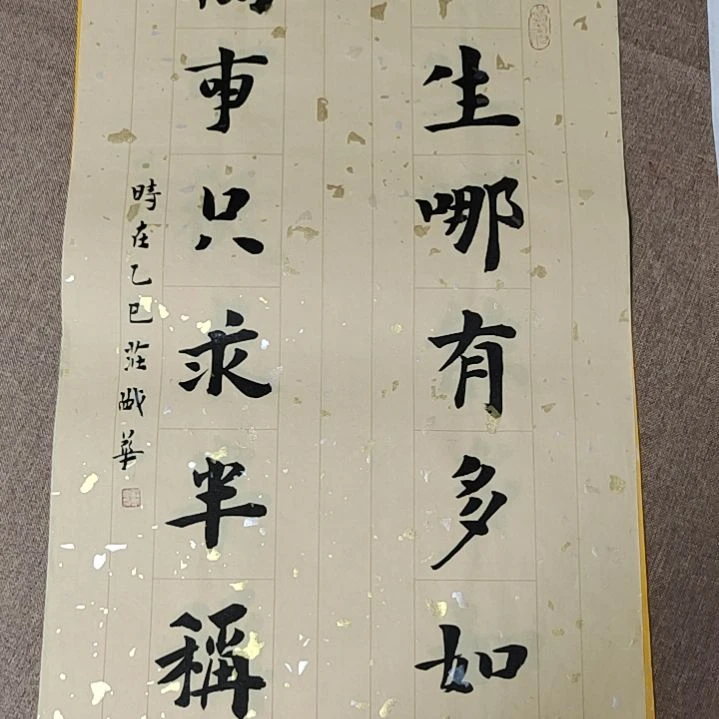 生哪有多如
萬事只求半稱
時在乙巳莊華